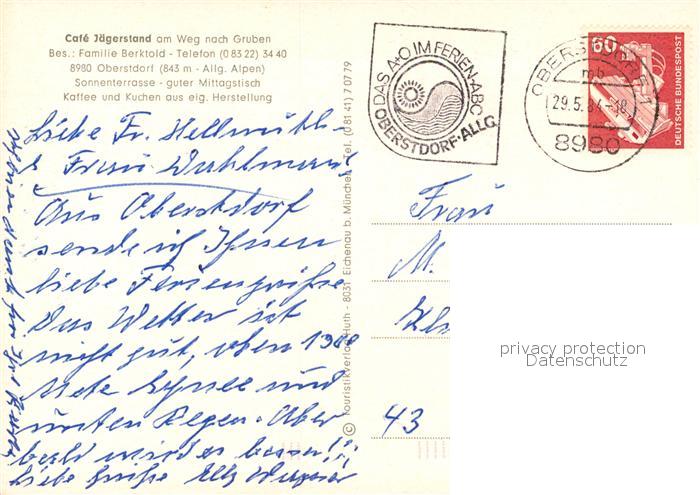 Café Jägerstand am Weg nach Gruben
Bes.: Familie Berktold - Telefon (0 83 22) 34 40
8980 Oberstdorf (843 m - Allg. Alpen)
Sonnenterrasse - guter Mittagstisch
Kaffee und Kuchen aus eig. Herstellung
Liebe Fr. Hellmuth
& Frau Dahlmann
Aus Oberstdorf
sende ich Ihnen
liebe Feriengrüße
Das Wetter ist
nicht gut, oben
Schnee und
unten Regen. Aber
bald wird es besser!!
Liebe Grüße Elly
© Touristikverlag Huth - 8031 Eichenau b. München, Tel. (0 81 41) 7 07 79
DAS A+O IM FERIEN-ABC
OBERSTDORF·ALLG.
OBERSTDORF 1
mb
29.5.84-18
8980
60
DEUTSCHE BUNDESPOST
Frau
M.
43
privacy protection
Datenschutz